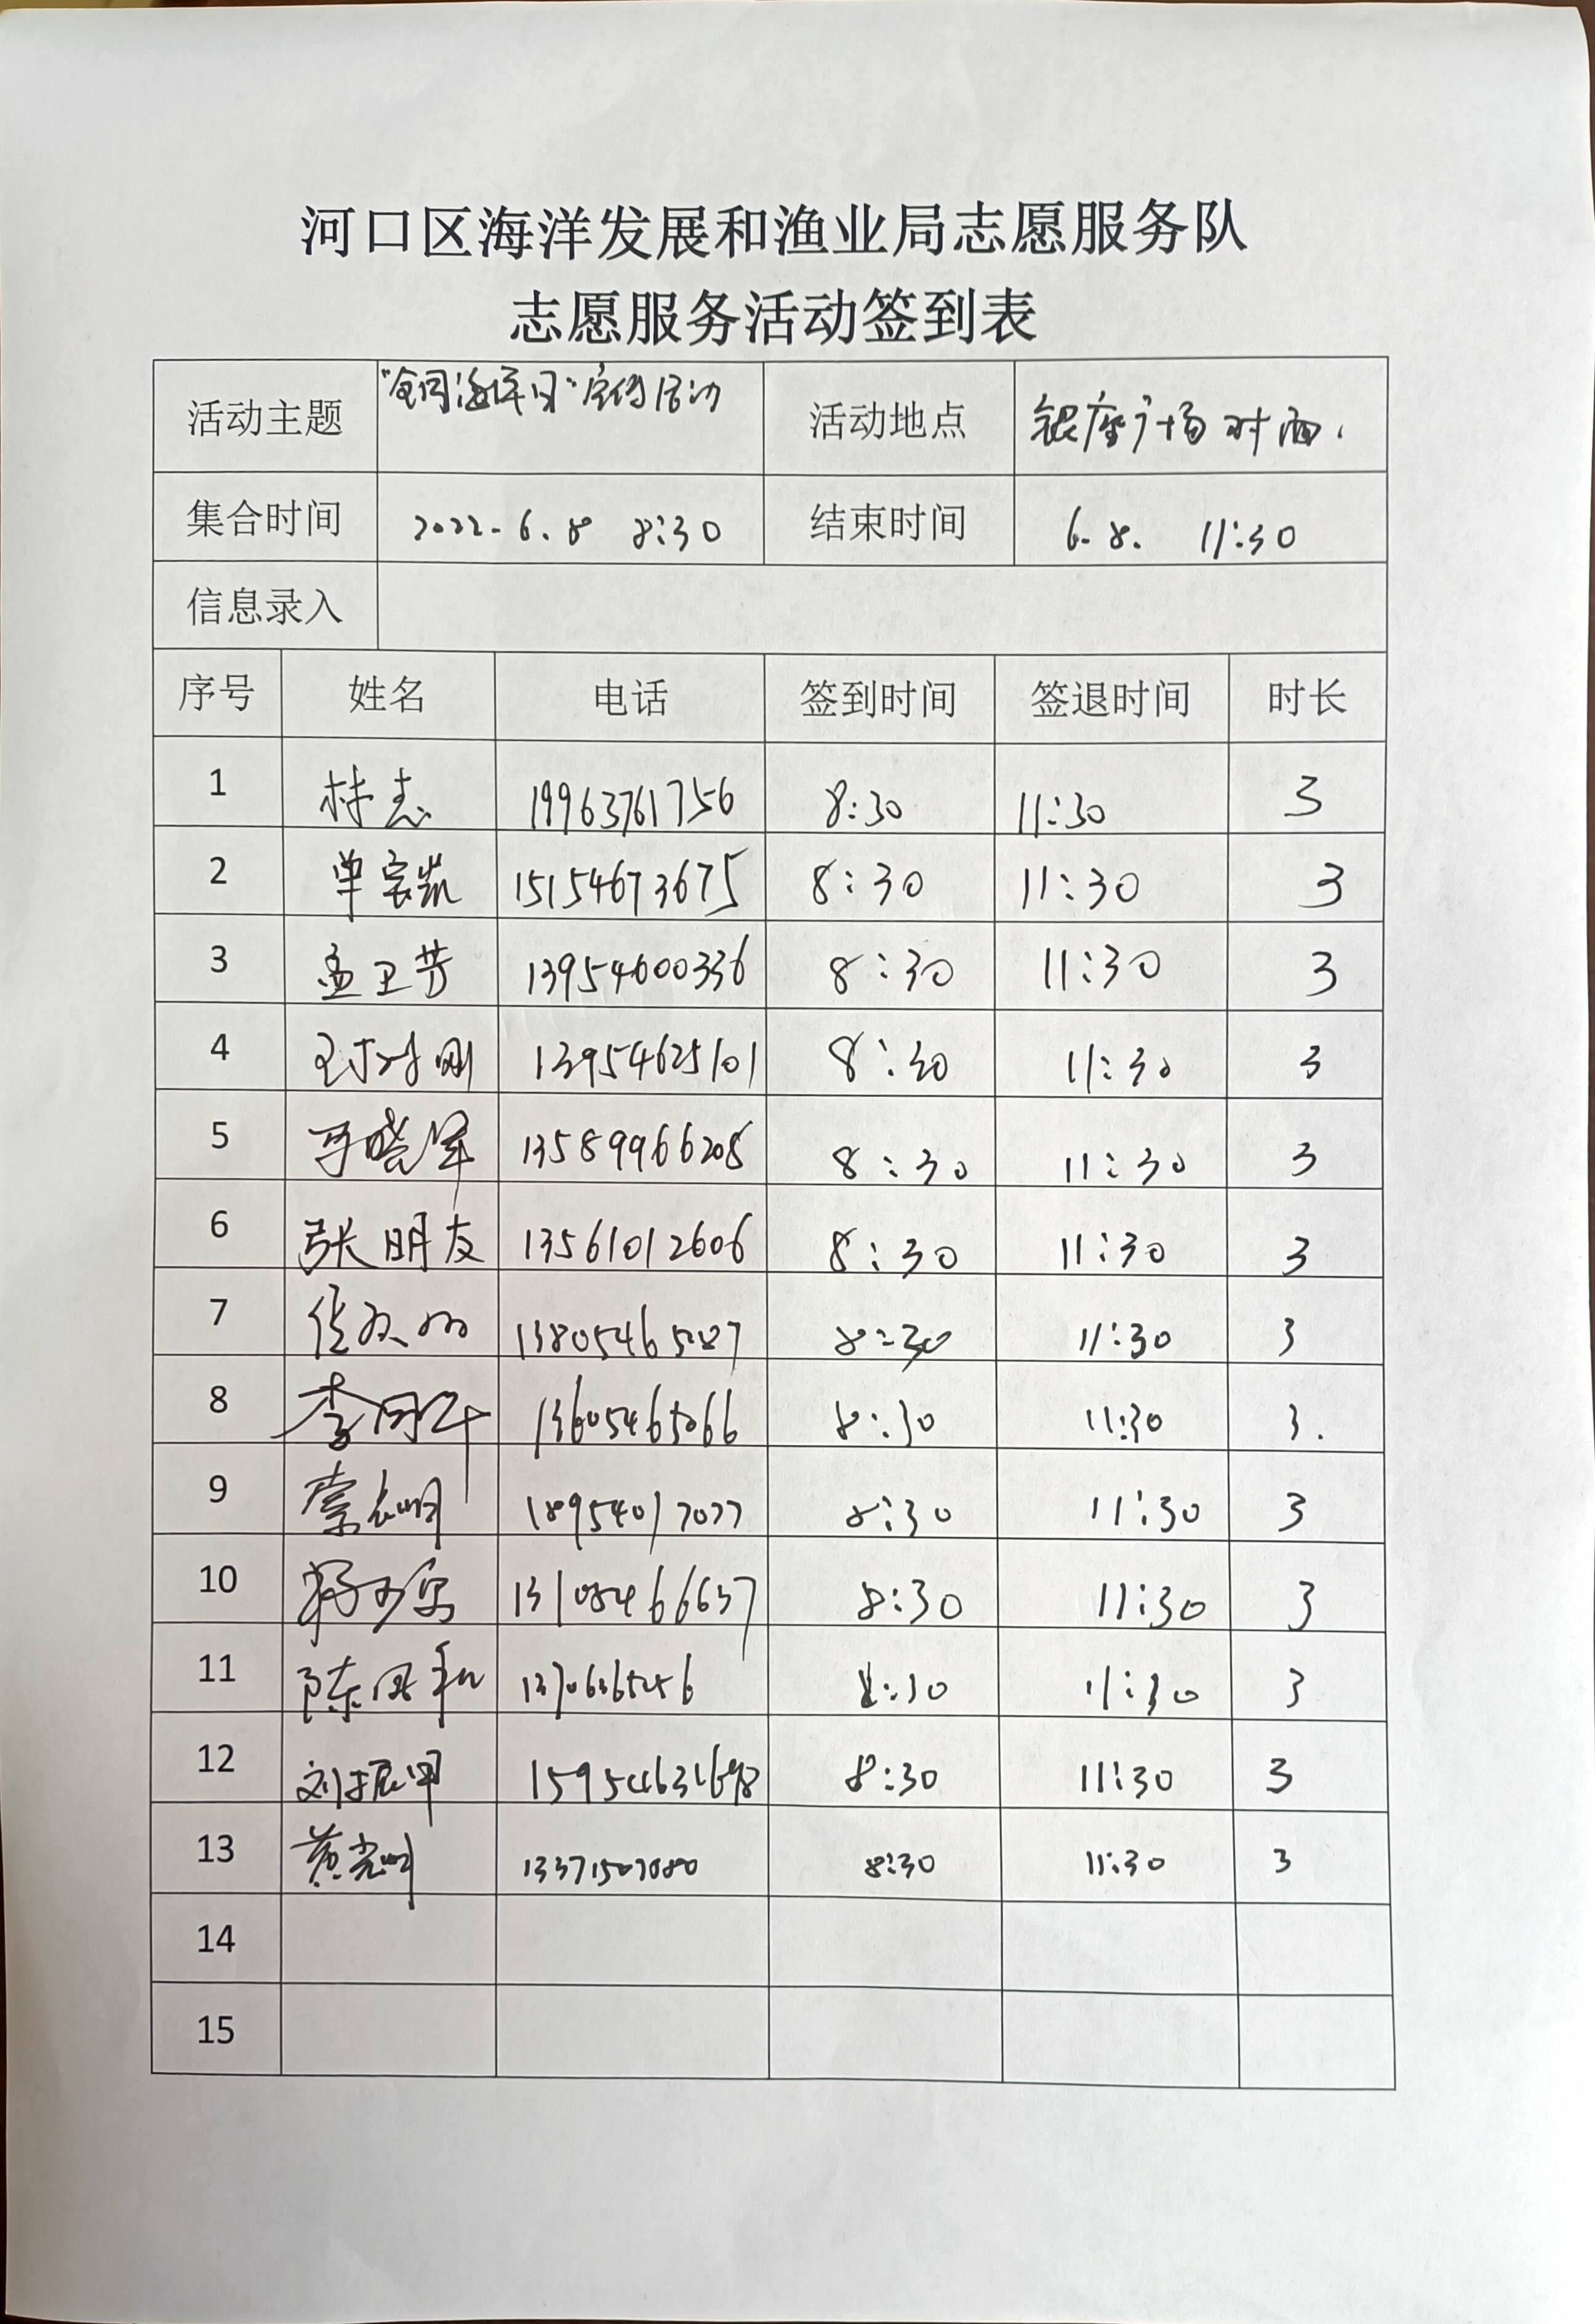 河口区海洋发展和渔业局志愿服务队
志愿服务活动签到表
活动主题 "全国海洋日"宣传活动 活动地点 银座广场对面.
集合时间 2022.6.8 8:30 结束时间 6.8. 11:30
信息录入
序号 姓名 电话 签到时间 签退时间 时长
1 林志 19963761756 8:30 11:30 3
2 单宝凯 15154673675 8:30 11:30 3
3 孟卫芳 13954600336 8:30 11:30 3
4 13954625101 8:30 11:30 3
5 晓军 13589966208 8:30 11:30 3
6 张明友 13561012606 8:30 11:30 3
7 8:30 11:30 3
8 李 13605465066 8:30 11:30 3.
9 18954017077 8:30 11:30 3
10 8:30 11:30 3
11 陈 8:30 11:30 3
12 刘振军 8:30 11:30 3
13 黄光明 13371507080 8:30 11:30 3
14
15